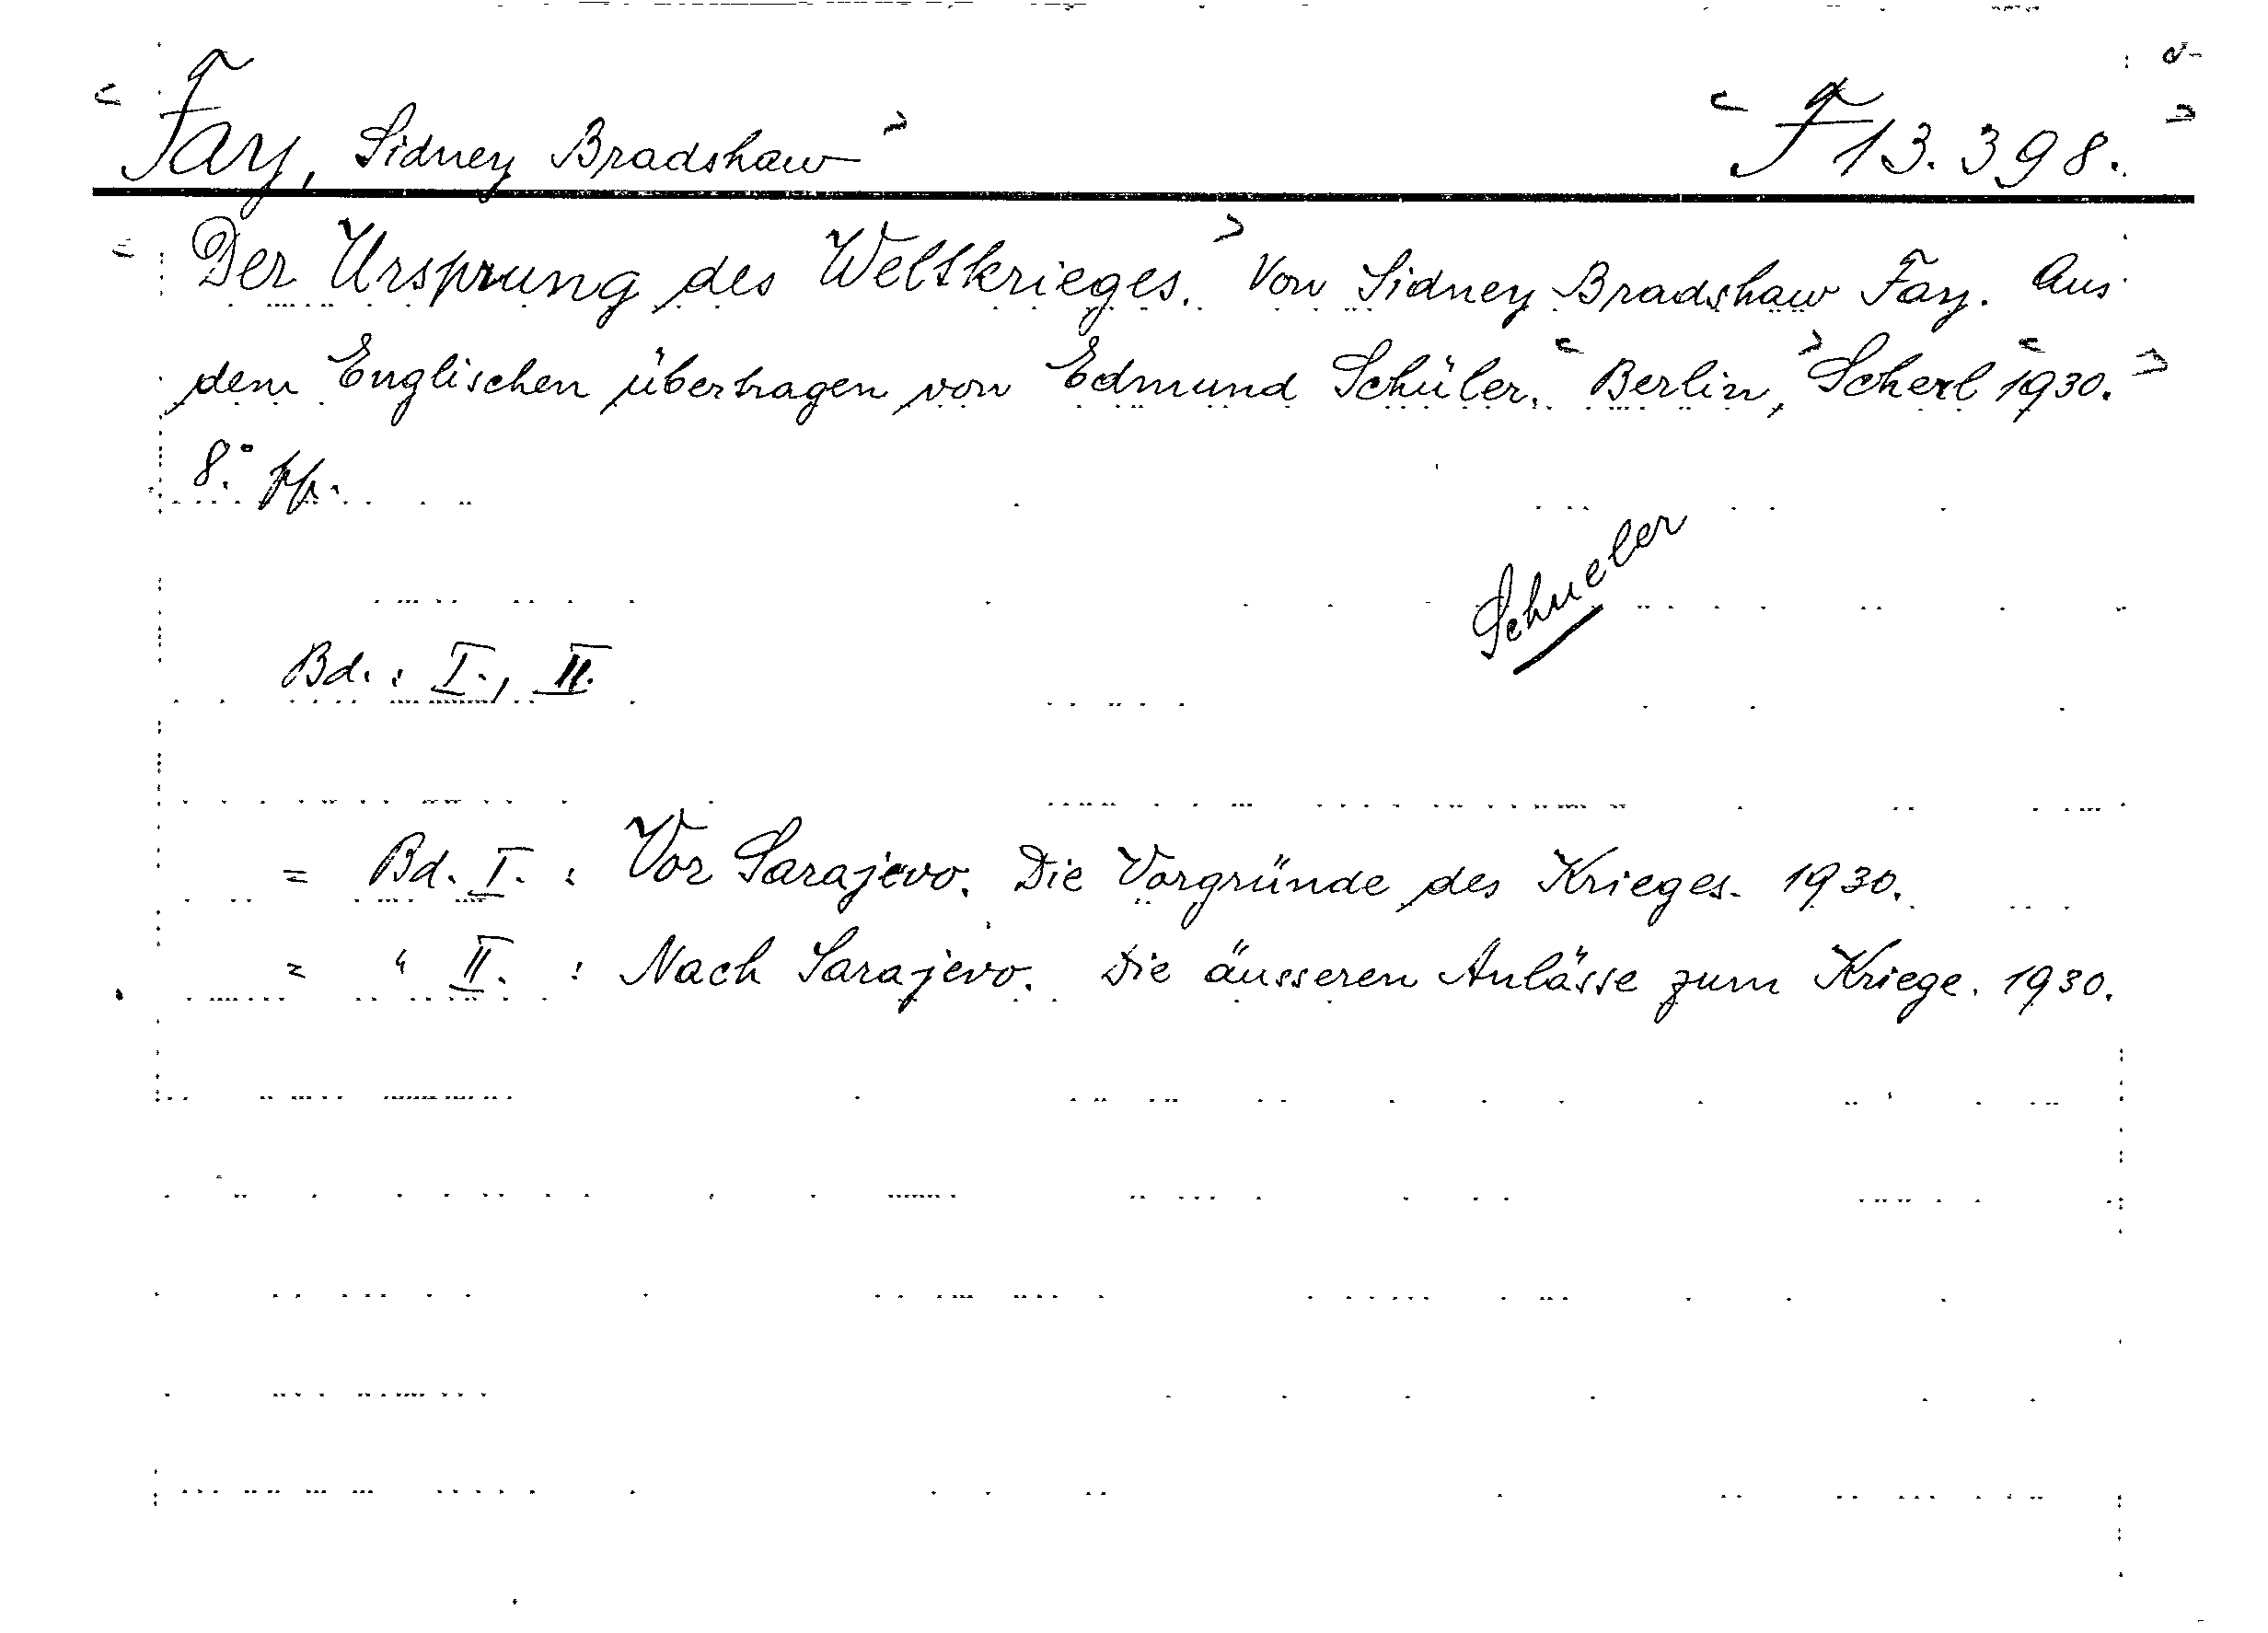 Fay, Sidney Bradshaw F 13.398.
Der Ursprung des Weltkrieges. Von Sidney Bradshaw Fay. Aus
dem Englischen übertragen von Edmund Schüler. Berlin, Scherl 1930.
8.°
Schueler
Bd. : I., II.
= Bd. I. : Vor Sarajevo. Die Vorgründe des Krieges. 1930.
= " II. : Nach Sarajevo. Die äusseren Anlässe zum Kriege. 1930.